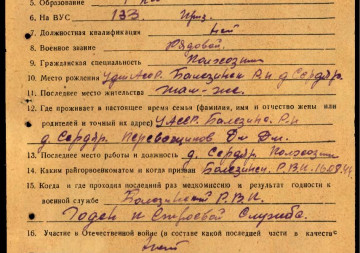 5. Образование
6. На ВУС 133. Приз.
7. Должностная квалификация Нет
8. Военное звание Рядовой.
9. Гражданская специальность Колхозник
10. Место рождения УдмАССР. Балезинск. Р-н д. Сердяр.
11. Последнее место жительства
12. Где проживает в настоящее время семья (фамилия, имя и отчество жены или
родителей и точный их адрес) УАССР. Балезинс. Р-н
д. Сердяр. Перевощиков Дм. Дм.
13. Последнее место работы и должность д. Сердяр Колхозник
14. Каким райгорвоенкоматом и когда призван Балезинск. Р.В.К.
15. Когда и где проходил последний раз медкомиссию и результат годности к
военной службе Балезинский Р.В.К.
Годен к строевой службе.
16. Участие в Отечественной войне (в составе какой последней части в качестве
Нет